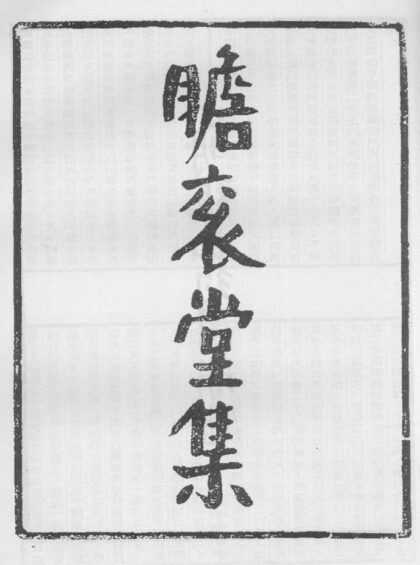 瞻袞堂集